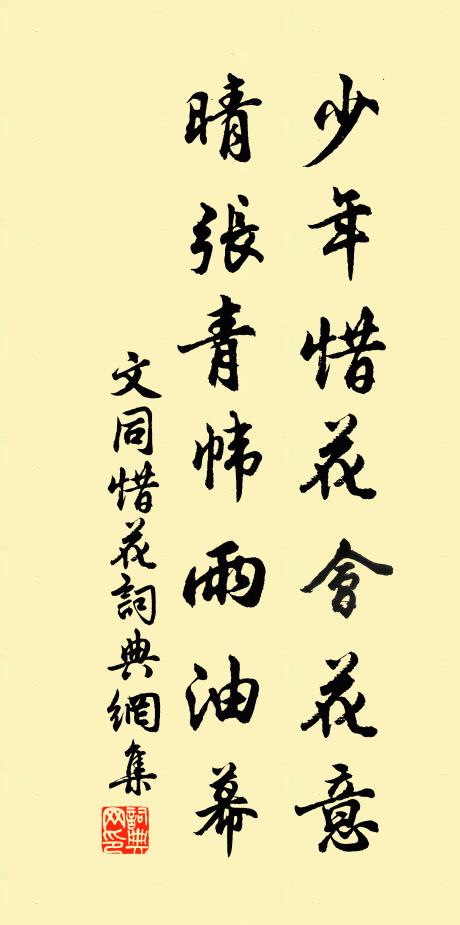 少年惜花會花意
晴張青幃雨油幕
文同惜花詞典網集
詞典網印